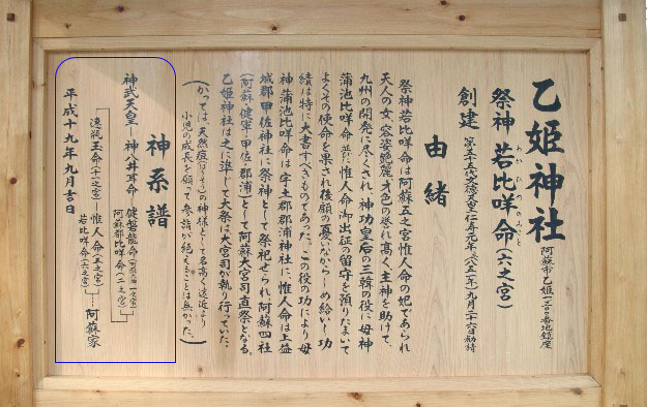 乙姫神社
阿蘇市乙姫
番地鎮座
祭神 若比咩命(六之宮)
わかひめのみこと
創建 第五十五代文徳天皇仁寿元年(八五一年)九月二十六日勧請
由緒
祭神若比咩命は阿蘇五之宮惟人命の妃であられ
天人の女 容姿艶麗才色の誉れ高く主神を助けて、
九州の開発に尽くされ、神功皇后の三韓の役に母神
蒲池比咩命並に惟人命御出征の留守を預りたまいて
よくその使命を果され後顧の憂いなからしめ給いし功
績は特に大書すべきものであった。この役の功により母
神蒲池比咩命は宇土郡郡浦神社に、惟人命は上益
城郡甲佐神社に祭神として祭祀せられ、阿蘇四社
(阿蘇・健軍・甲佐・郡浦)として阿蘇大宮司直祭となる。
乙姫神社は之に準じて大祭は大宮司が執り行っていた。
(かっては、天然痘(ほうそう)の神様として名高く遠近より
小児の成長を願って参詣が絶えることは無かった。)
神系譜
神武天皇―神八井耳命―健磐龍命
阿蘇都比咩命(二之宮)
速瓶玉命(十一之宮)―惟人命(五之宮)
若比咩命(六之宮)
阿蘇家
平成十九年九月吉日